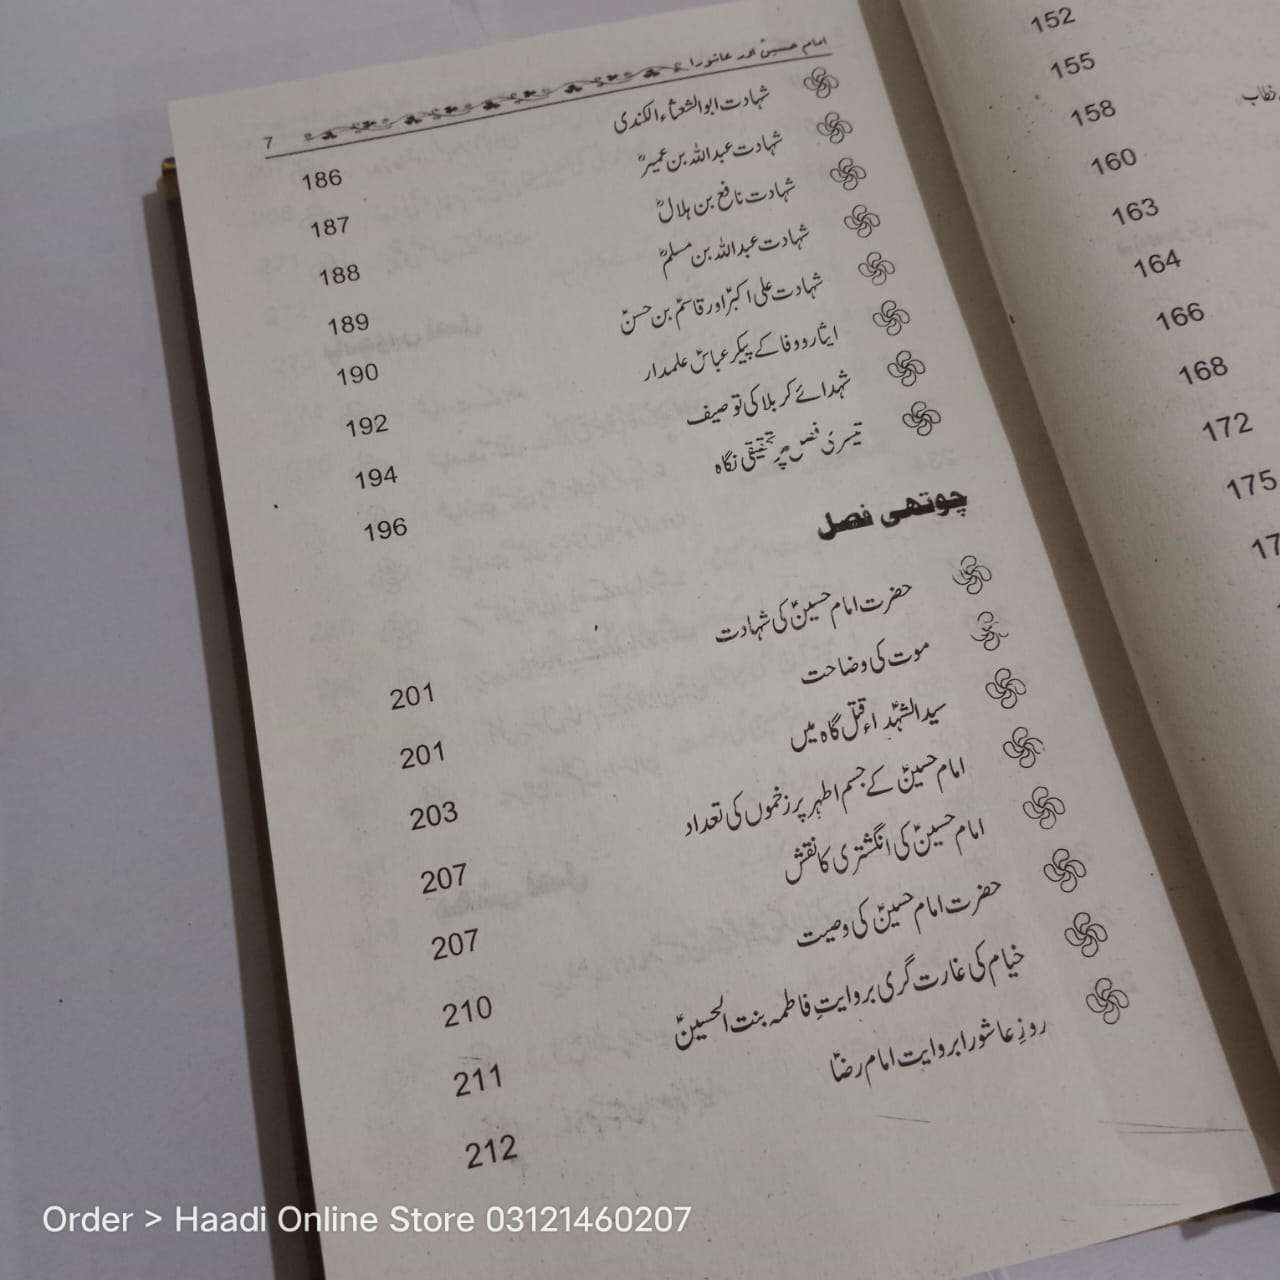 امام حسینؑ اور عاشورا
7
شہادت ابوالشعثاء الکندی 186
شہادت عبداللہ بن عمیرؓ 187
شہادت نافع بن ہلالؓ 188
شہادت عبداللہ بن مسلمؓ 189
شہادت علی اکبرؑ اور قاسمؑ بن حسنؑ 190
ایثار و وفا کے پیکر عباسؑ علمدار 192
شہدائے کربلا کی توصیف 194
تیسری فصل پر تحقیقی نگاہ 196
چوتھی فصل
حضرت امام حسینؑ کی شہادت 201
موت کی وضاحت 201
سید الشہداءؑ قتل گاہ میں 203
امام حسینؑ کے جسم اطہر پر زخموں کی تعداد 207
امام حسینؑ کی انگشتری کا نقش 207
حضرت امام حسینؑ کی وصیت 210
خیام کی غارت گری بروایتِ فاطمہ بنت الحسینؑ 211
روزِ عاشورا بروایت امام رضاؑ 212
152
155
158
160
163
164
166
168
172
175
Order > Haadi Online Store 03121460207